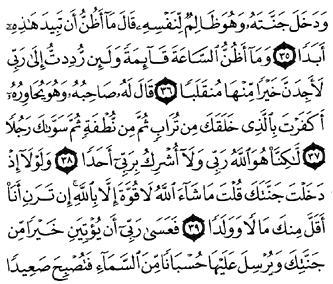 وَدَخَلَ جَنَّتَهُۥ وَهُوَ ظَالِمٌ لِّنَفْسِهِۦ قَالَ مَآ أَظُنُّ أَن تَبِيدَ هَٰذِهِۦٓ
أَبَدًا ٣٥ وَمَآ أَظُنُّ ٱلسَّاعَةَ قَآئِمَةً وَلَئِن رُّدِدتُّ إِلَىٰ رَبِّى
لَأَجِدَنَّ خَيْرًا مِّنْهَا مُنقَلَبًا ٣٦ قَالَ لَهُۥ صَاحِبُهُۥ وَهُوَ يُحَاوِرُهُۥٓ
أَكَفَرْتَ بِٱلَّذِى خَلَقَكَ مِن تُرَابٍ ثُمَّ مِن نُّطْفَةٍ ثُمَّ سَوَّىٰكَ رَجُلًا
٣٧ لَّٰكِنَّا۠ هُوَ ٱللَّهُ رَبِّى وَلَآ أُشْرِكُ بِرَبِّىٓ أَحَدًا ٣٨ وَلَوْلَآ إِذْ
دَخَلْتَ جَنَّتَكَ قُلْتَ مَا شَآءَ ٱللَّهُ لَا قُوَّةَ إِلَّا بِٱللَّهِ إِن تَرَنِ أَنَا۠
أَقَلَّ مِنكَ مَالًا وَوَلَدًا ٣٩ فَعَسَىٰ رَبِّىٓ أَن يُؤْتِيَنِ خَيْرًا مِّن
جَنَّتِكَ وَيُرْسِلَ عَلَيْهَا حُسْبَانًا مِّنَ ٱلسَّمَآءِ فَتُصْبِحَ صَعِيدًا